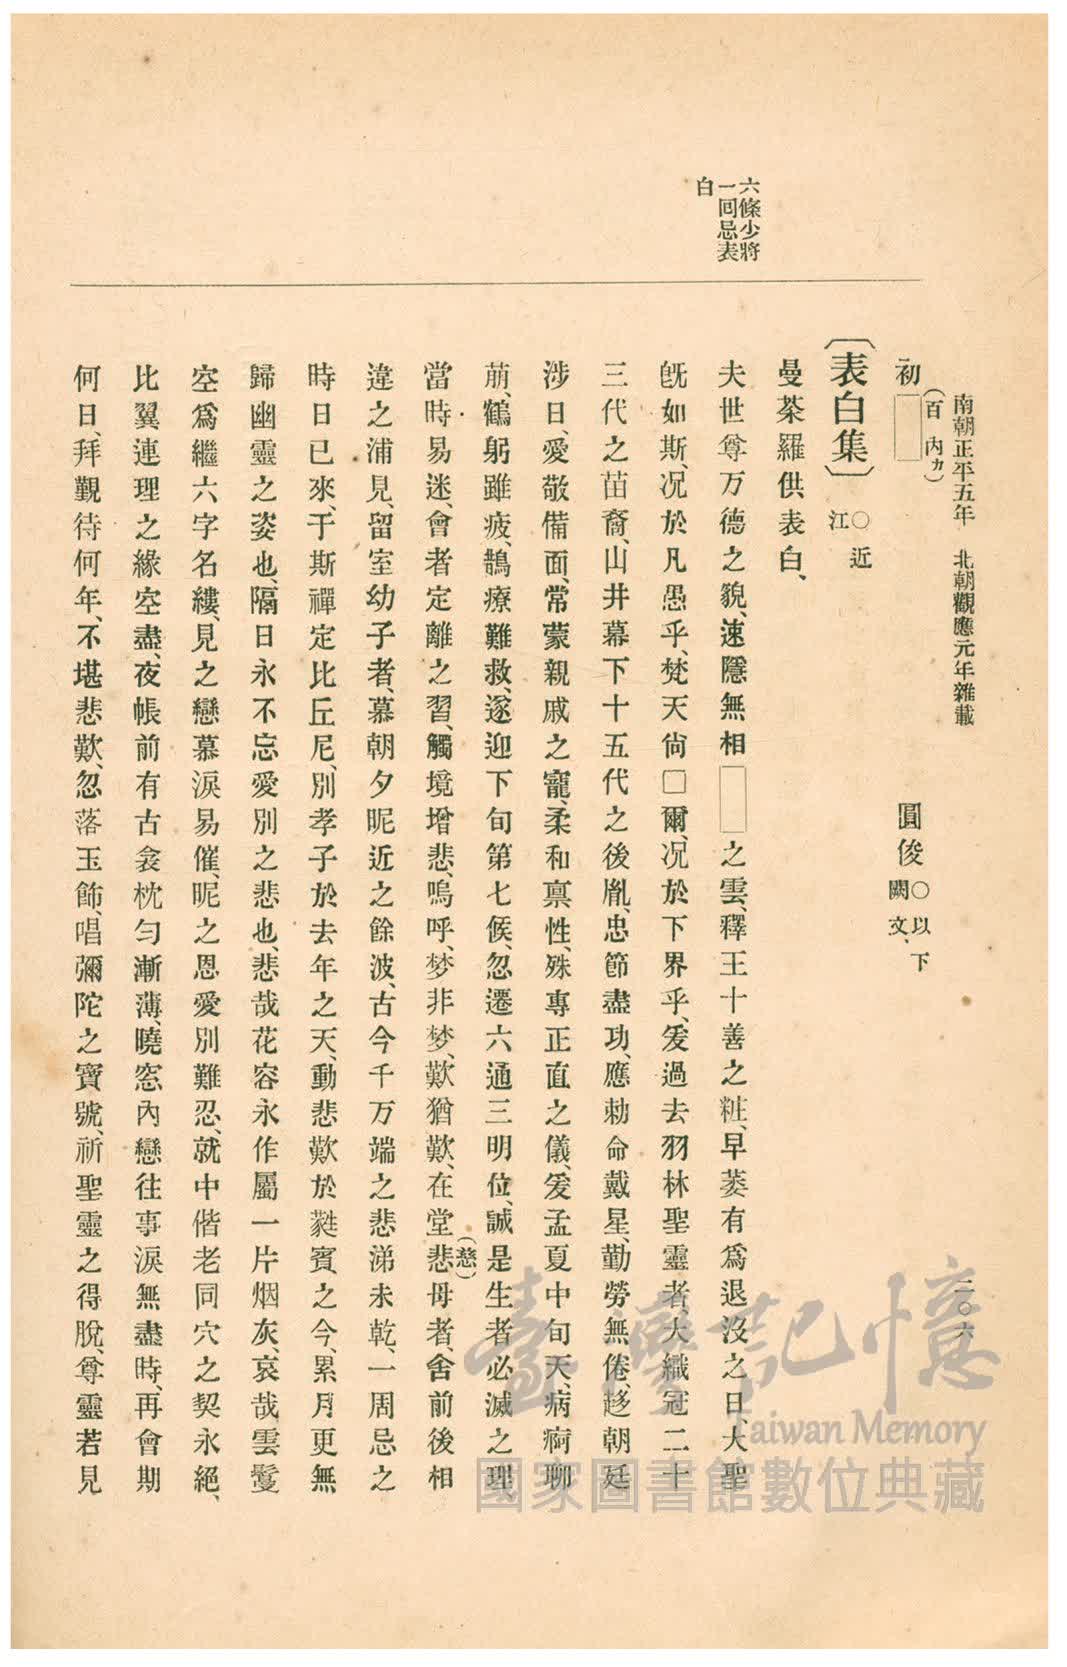 南朝正平五年　北朝觀應元年雜載
二〇六
六條少將
一回忌表
白
初□(百內カ)　圓俊○以下闕文、
〔表白集〕○近江
曼荼羅供表白、
夫世尊万德之貌、速隱無相□之雲、釋王十善之粧、早萎有爲退沒之日、大聖
既如斯、況於凡愚乎、梵天尙□爾、況於下界乎、爰過去羽林聖靈者、大織冠二十
三代之苗裔、山井幕下十五代之後胤、忠節盡功、應勅命戴星、勤勞無倦、趍朝廷
涉日、愛敬備面、常蒙親戚之寵、柔和禀性、殊專正直之儀、爰孟夏中旬天、病痾聊
萠、鶴躬雖疲、鵲療難救、遂迎下旬第七候、忽遷六通三明位、誠是生者必滅之理
當時易迷、會者定離之習、觸境增悲、嗚呼、梦非梦、歎猶歎、在堂悲(慈)母者、舍前後相
違之浦見、留室幼子者、慕朝夕昵近之餘波、古今千万端之悲涕未乾、一周忌之
時日已來、于斯禪定比丘尼、別孝子於去年之天、動悲歎於蕤賓之今、累月更無
歸幽靈之姿也、隔日永不忘愛別之悲也、悲哉花容永作屬一片烟灰、哀哉雲鬘
空爲繼六字名縷、見之戀慕淚易催、昵之恩愛別難忍、就中偕老同穴之契永絕、
比翼連理之緣空盡、夜帳前有古衾枕匂漸薄、曉窓內戀往事淚無盡時、再會期
何日、拜覲待何年、不堪悲歎、忽落玉飾、唱彌陀之寶號、祈聖靈之得脫、尊靈若見
臺灣記憶
Taiwan Memory
國家圖書館數位典藏